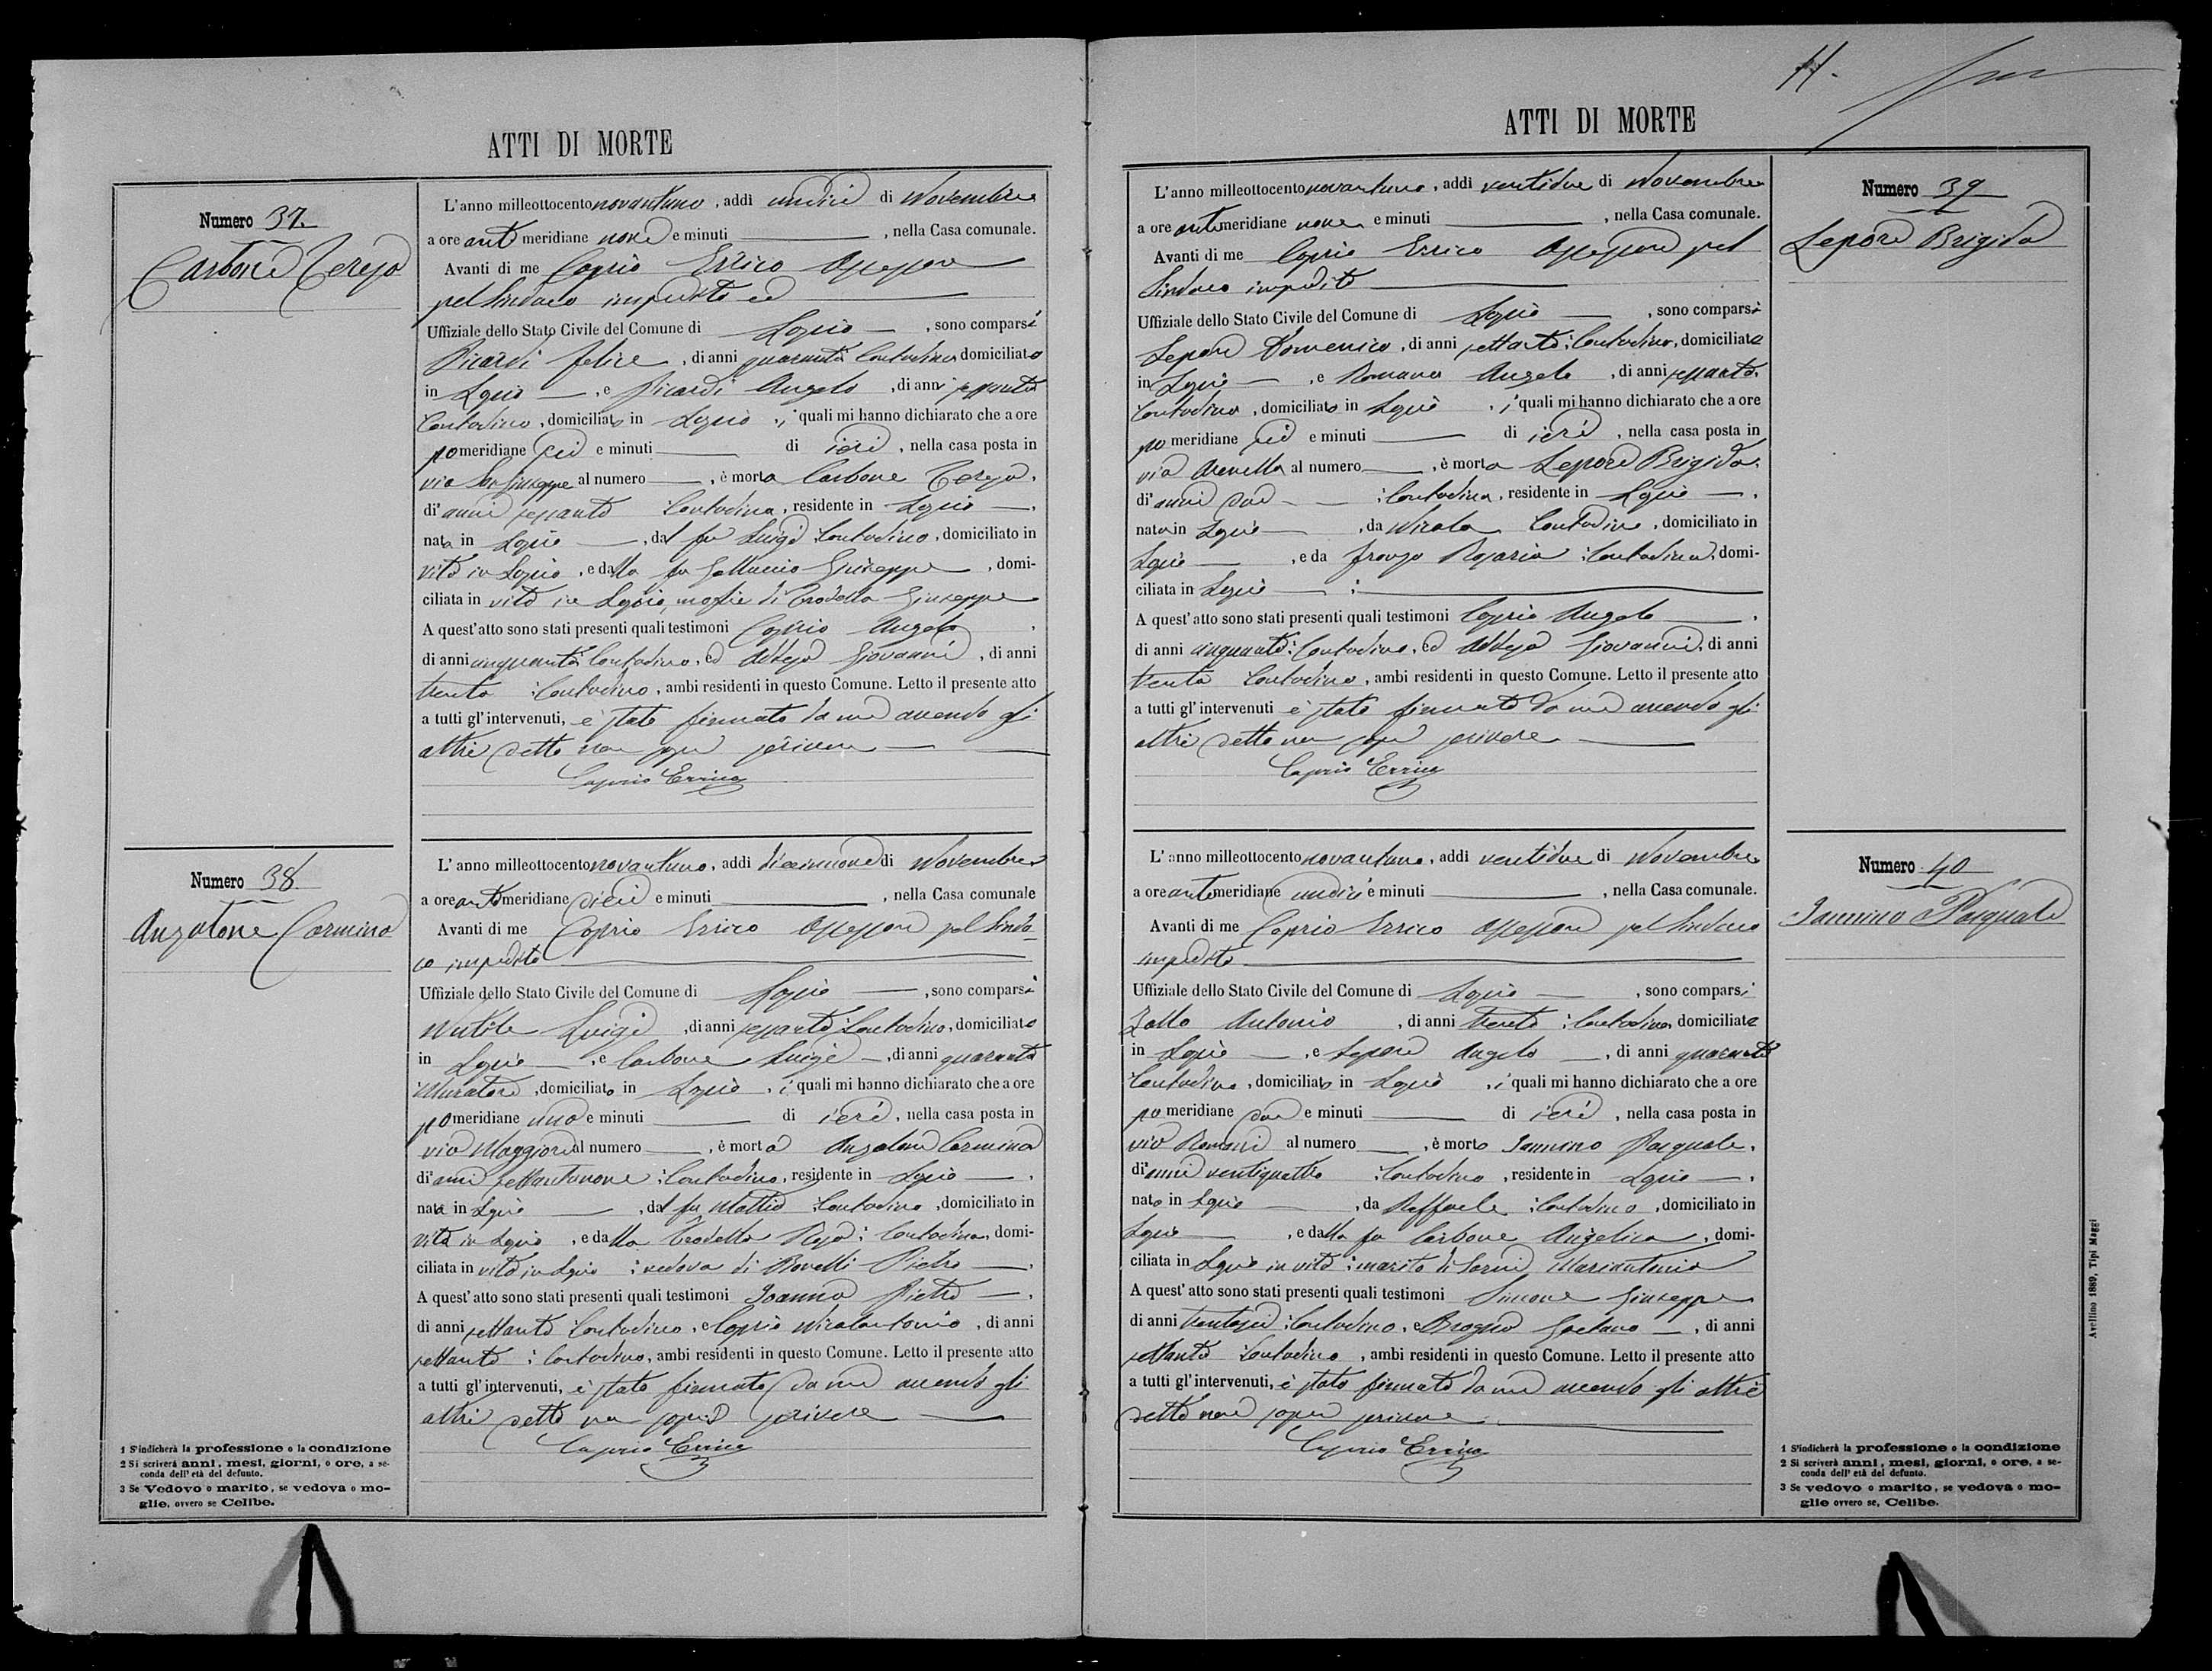 ATTI DI MORTE
Numero 37.
Carbone Teresa
L'anno milleottocentonovantuno, addì undici di Novembre
a ore anti meridiane nove e minuti , nella Casa comunale.
Avanti di me Caprio Errico Assessore
pel Sindaco impedito ed
Uffiziale dello Stato Civile del Comune di , sono comparsi
Picardi Felice, di anni quaranta Contadino domiciliato
in , e Picardi Angelo, di anni sessanta
Contadino, domiciliato in , i quali mi hanno dichiarato che a ore
pomeridiane sei e minuti di ieri, nella casa posta in
via San Giuseppe al numero , è morta Carbone Teresa.
di anni sessanta Contadina, residente in
nata in , dal fu Luigi Contadino, domiciliato in
vita in , e dalla fu Galluccio Giuseppe, domi-
ciliata in vita in , moglie di Trodella Giuseppe
A quest'atto sono stati presenti quali testimoni Caprio Angelo,
di anni cinquanta Contadino, ed Giovanni, di anni
trenta Contadino, ambi residenti in questo Comune. Letto il presente atto
a tutti gl'intervenuti, è stato firmato da me avendo gli
altri detto non saper scrivere
Caprio Errico
Numero 38
Anzalone Carmina
L'anno milleottocentonovantuno, addì diecinnove di Novembre
a ore antimeridiane dieci e minuti , nella Casa comunale
Avanti di me Caprio Errico Assessore pel Sinda-
co impedito
Uffiziale dello Stato Civile del Comune di , sono comparsi
Nutile Luigi, di anni sessanta Contadino, domiciliato
in , e Carbone Luigi, di anni quaranta
Muratore, domiciliato in , i quali mi hanno dichiarato che a ore
pomeridiane una e minuti di ieri, nella casa posta in
via Maggiore al numero , è morta Anzalone Carmina
di anni settantanove Contadina, residente in
nata in , dal fu Mattia Contadino, domiciliato in
vita in , e dalla Trodella Rosa Contadina, domi-
ciliata in vita in : vedova di Pietro
A quest'atto sono stati presenti quali testimoni Joanna Pietro
di anni settanta Contadino, e Caprio Nicolantonio, di anni
settanta Contadino, ambi residenti in questo Comune. Letto il presente atto
a tutti gl'intervenuti, è stato firmato da me avendo gli
altri detto non saper scrivere
Caprio Errico
1 S'indicherà la professione o la condizione
2 Si scriverà anni, mesi, giorni, o ore, a se-
conda dell'età del defunto.
3 Se Vedovo o marito, se vedova o mo-
glie, ovvero se Celibe.
11.
ATTI DI MORTE
Numero 39
Lepore Brigida
L'anno milleottocentonovantuno, addì ventidue di Novembre
a ore antimeridiane nove e minuti , nella Casa comunale.
Avanti di me Caprio Errico Assessore pel
Sindaco impedito
Uffiziale dello Stato Civile del Comune di , sono comparsi
Lepore Domenico, di anni settanta Contadino, domiciliato
in , e Romano Angelo, di anni sessanta.
Contadino, domiciliato in , i quali mi hanno dichiarato che a ore
pomeridiane sei e minuti di ieri, nella casa posta in
via Arenella al numero , è morta Lepore Brigida.
di anni due Contadina, residente in
nata in , da Nicola Contadino, domiciliato in
, e da Rosaria Contadina, domi-
ciliata in
A quest'atto sono stati presenti quali testimoni Caprio Angelo,
di anni cinquanta Contadino, ed Giovanni, di anni
trenta Contadino, ambi residenti in questo Comune. Letto il presente atto
a tutti gl'intervenuti è stato firmato da me avendo gli
altri detto non saper scrivere
Caprio Errico
Numero 40
Iannino Pasquale
L'anno milleottocentonovantuno, addì ventidue di Novembre
a ore antimeridiane undici e minuti , nella Casa comunale.
Avanti di me Caprio Errico Assessore pel Sindaco
impedito
Uffiziale dello Stato Civile del Comune di , sono comparsi
Zollo Antonio, di anni trenta Contadino domiciliato
in , e Lepore Angelo, di anni quaranta
Contadino, domiciliato in , i quali mi hanno dichiarato che a ore
pomeridiane due e minuti di ieri, nella casa posta in
via al numero , è morto Iannino Pasquale.
di anni ventiquattro Contadino, residente in
nato in , da Raffaele Contadino, domiciliato in
, e dalla fu Carbone Angelica, domi-
ciliata in in vita : marito di Mariantonia
A quest'atto sono stati presenti quali testimoni Simone Giuseppe
di anni trentasei Contadino, e Gaetano, di anni
settanta Contadino, ambi residenti in questo Comune. Letto il presente atto
a tutti gl'intervenuti, è stato firmato da me avendo gli altri
detto non saper scrivere
Caprio Errico
1 S'indicherà la professione o la condizione
2 Si scriverà anni, mesi, giorni, o ore, a se-
conda dell'età del defunto.
3 Se vedovo o marito, se vedova o mo-
glie ovvero se, Celibe.
Avellino 1889, Tipi Maggi